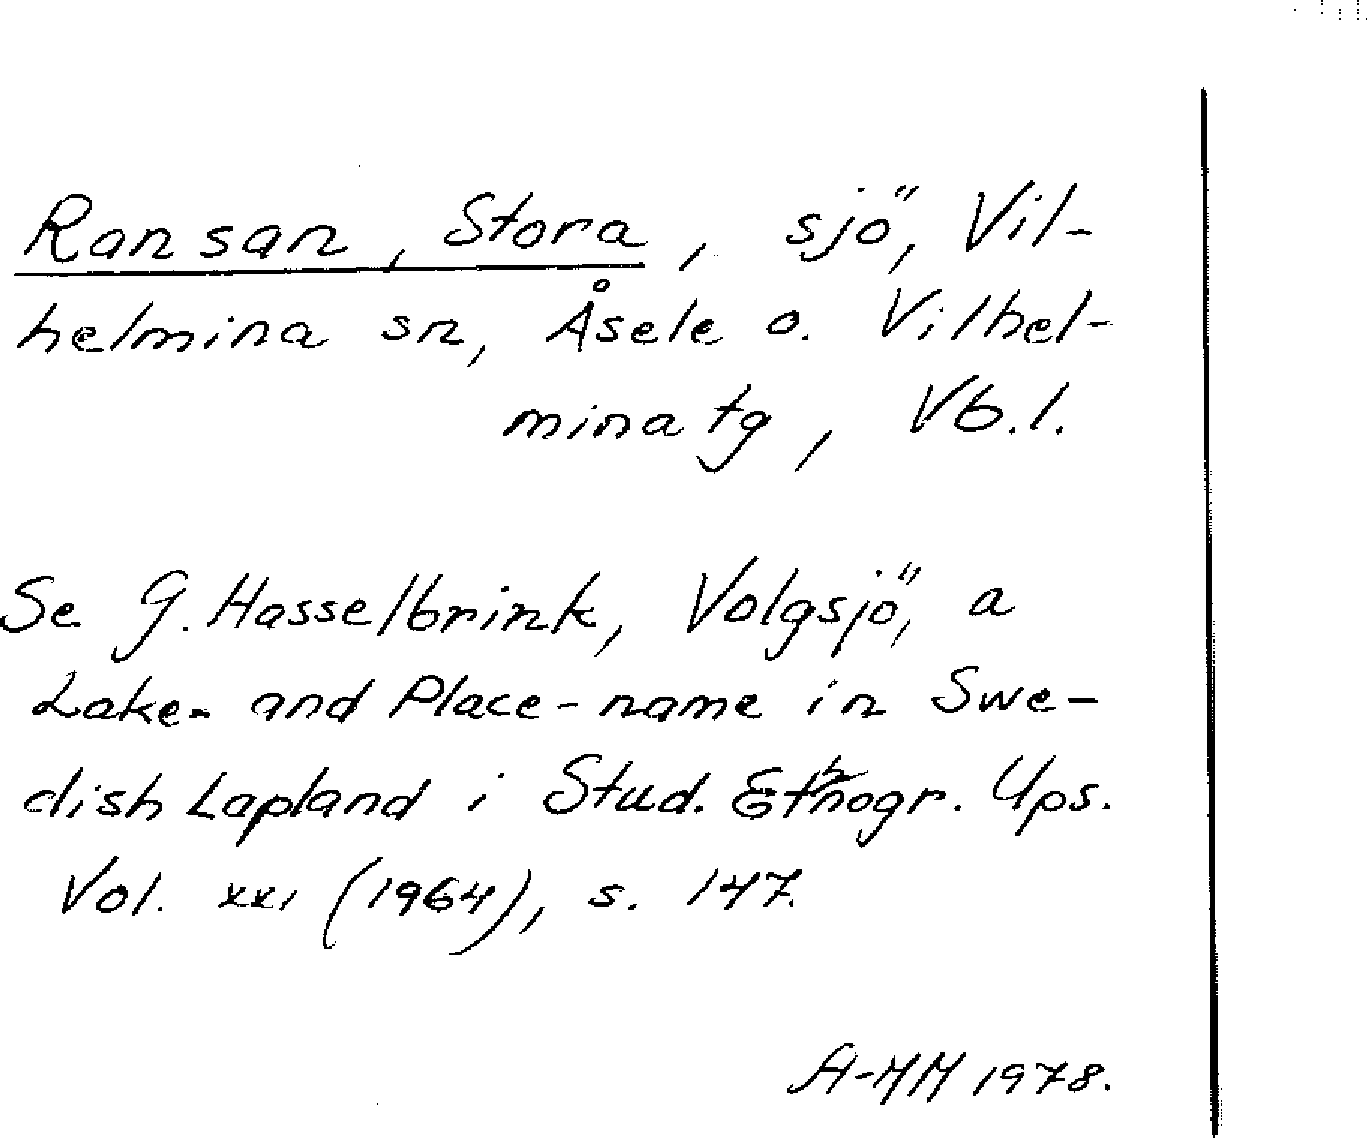 Ransan, Stora, sjö, Vil-
helmina sn, Åsele o. Vilhel-
mina tg, Vb.l.
Se G. Hasselbrink, Volgsjö, a
Lake- and Place-name in Swe-
dish Lapland i Stud. Ethnogr. Ups.
Vol. XXI (1964), s. 147.
A-MM 1978.